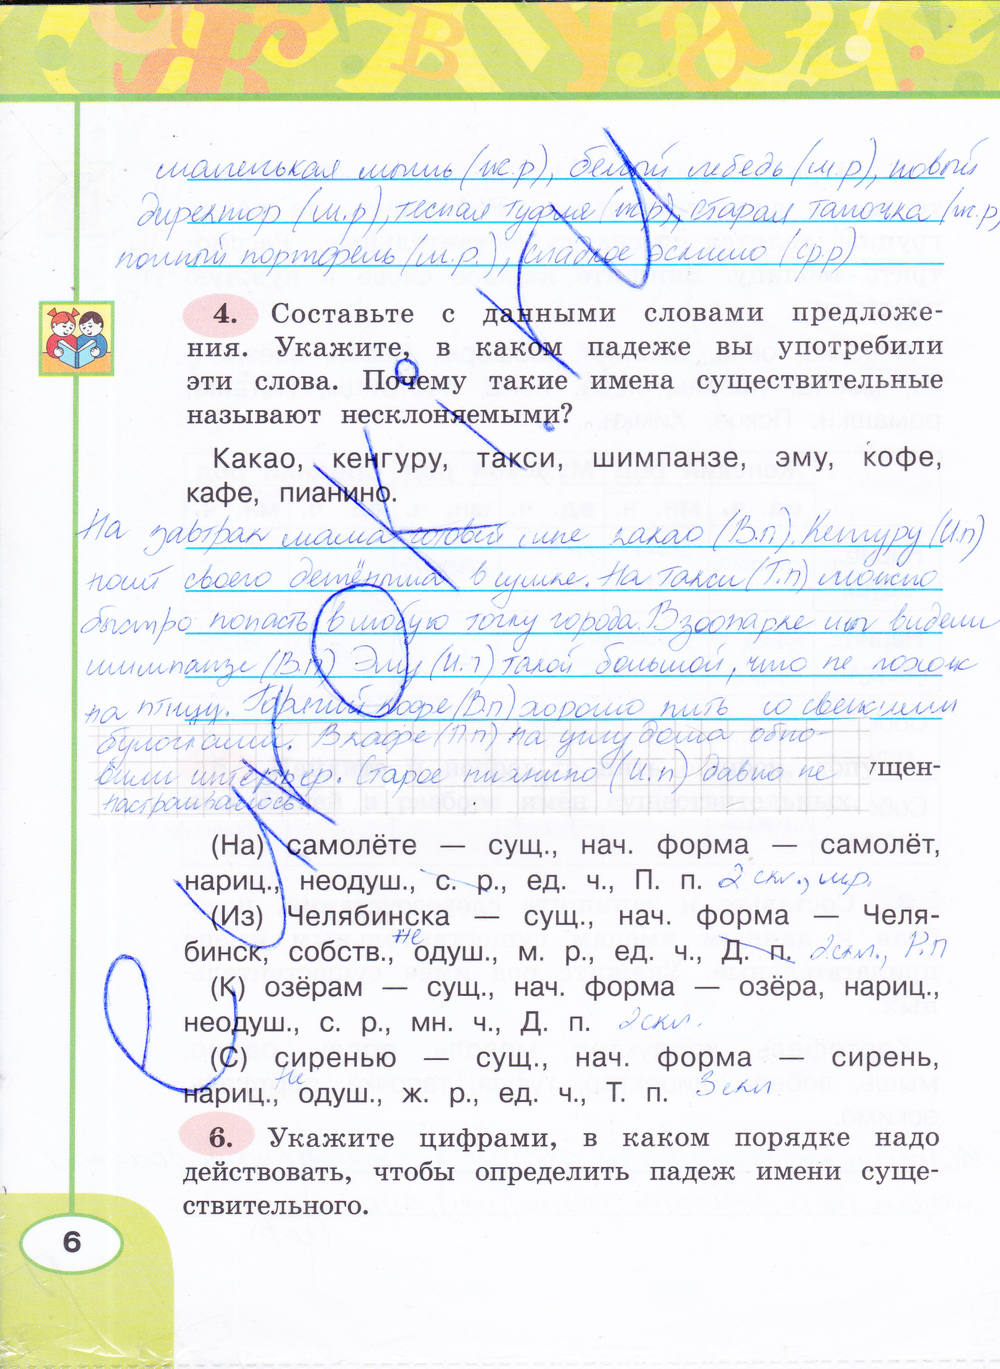 маленькая мышь (ж.р), белый лебедь (м.р), новый
директор (м.р), тесная туфля (ж.р), старая тапочка (ж.р)
полный портфель (м.р.), сладкое эскимо (ср.р)
4. Составьте с данными словами предложе-
ния. Укажите, в каком падеже вы употребили
эти слова. Почему такие имена существительные
называют несклоняемыми?
Какао, кенгуру, такси, шимпанзе, эму, кофе,
кафе, пианино.
На завтрак мама готовит мне какао (В.п). Кенгуру (И.п)
носит своего детёныша в сумке. На такси (Т.п) можно
быстро попасть в любую точку города. В зоопарке мы видели
шимпанзе (В.п) Эму (И.п) такой большой, что не похож
на птицу. Горячий кофе (В.п) хорошо пить со свежими
булочками. В кафе (П.п) на углу дома обно-
вили интерьер. Старое пианино (И.п) давно не ущен-
настраивалось
(На) самолёте — сущ., нач. форма — самолёт,
нариц., неодуш., с. р., ед. ч., П. п. 2 скл., м.р.
(Из) Челябинска — сущ., нач. форма — Челя-
бинск, собств., не одуш., м. р., ед. ч., Д. п. 2 скл., Р.п
(К) озёрам — сущ., нач. форма — озёра, нариц.,
неодуш., с. р., мн. ч., Д. п. 2 скл.
(С) сиренью — сущ., нач. форма — сирень,
нариц., не одуш., ж. р., ед. ч., Т. п. 3 скл
6. Укажите цифрами, в каком порядке надо
действовать, чтобы определить падеж имени суще-
ствительного.
6